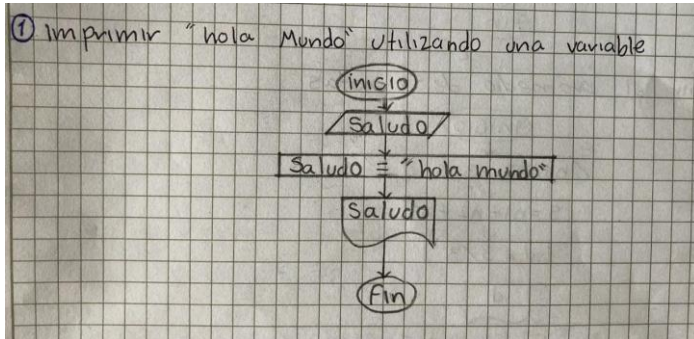 ① Imprimir "hola Mundo" utilizando una variable
inicio
Saludo
Saludo = "hola mundo"
Saludo
Fin